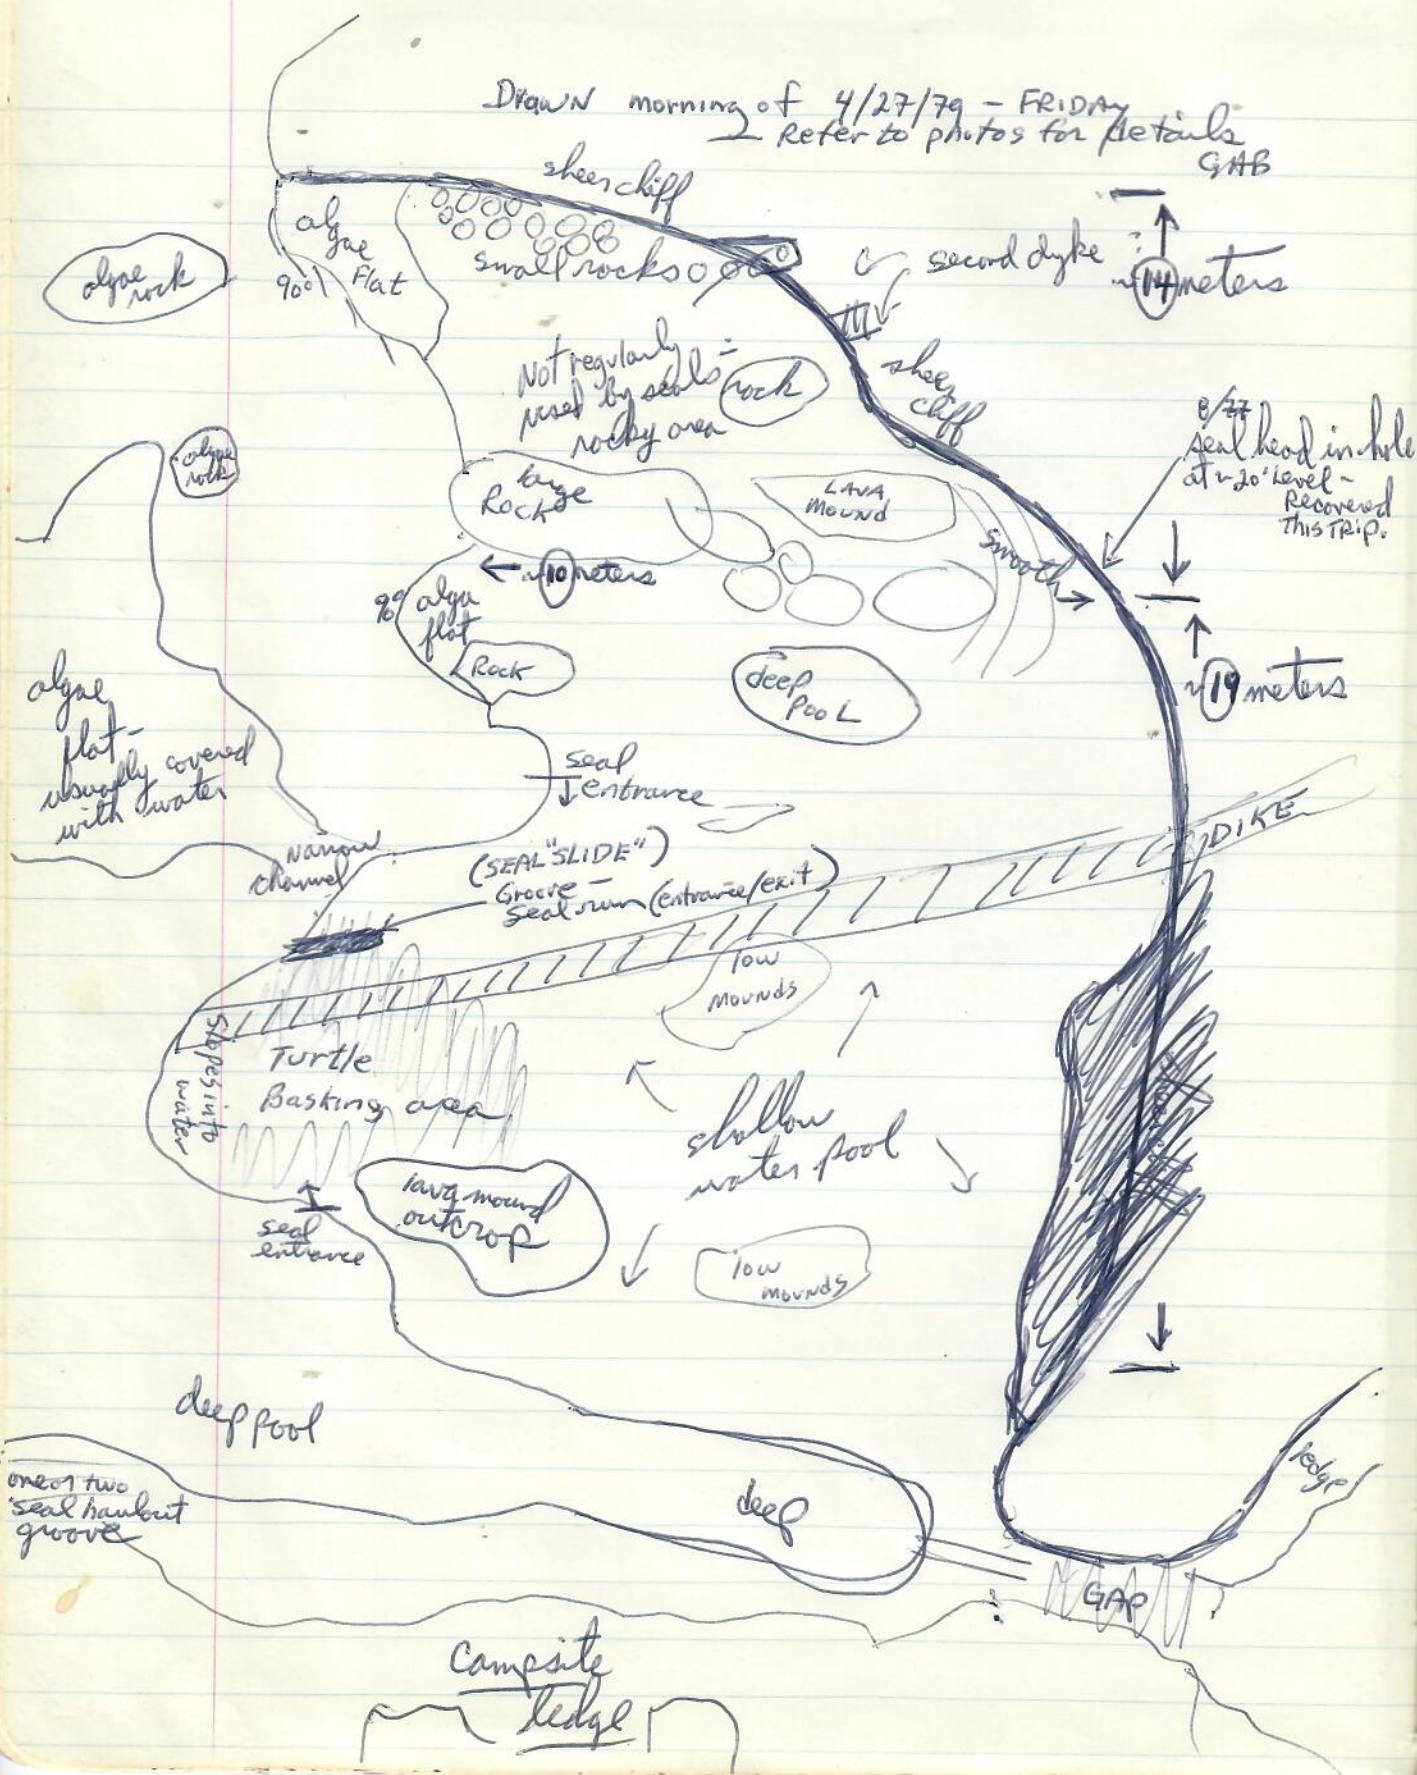 Drawn morning of 4/27/79 - FRIDAY
Refer to photos for details
GAB
sheer cliff
algae
Flat
90°
algae
rock
small rocks
second dyke
~14 meters
Not regularly
used by seals -
rocky area
rock
sheer
cliff
8/77
seal head in hole
at ~20' level -
Recovered
This TRIP.
algae
rock
large
Rock
LAVA
Mound
smooth
~10 meters
90°
algae
flat
Rock
deep
Pool
~19 meters
algae
flat -
usually covered
with water
seal
entrance
DIKE
Narrow
channel
(SEAL "SLIDE")
Groove -
Seal run (entrance/exit)
low
mounds
Slopes into
water
Turtle
Basking area
shallow
water pool
lava mound
outcrop
seal
entrance
low
mounds
deep pool
ledge
one of two
seal haulout
groove
deep
GAP
Campsite
ledge